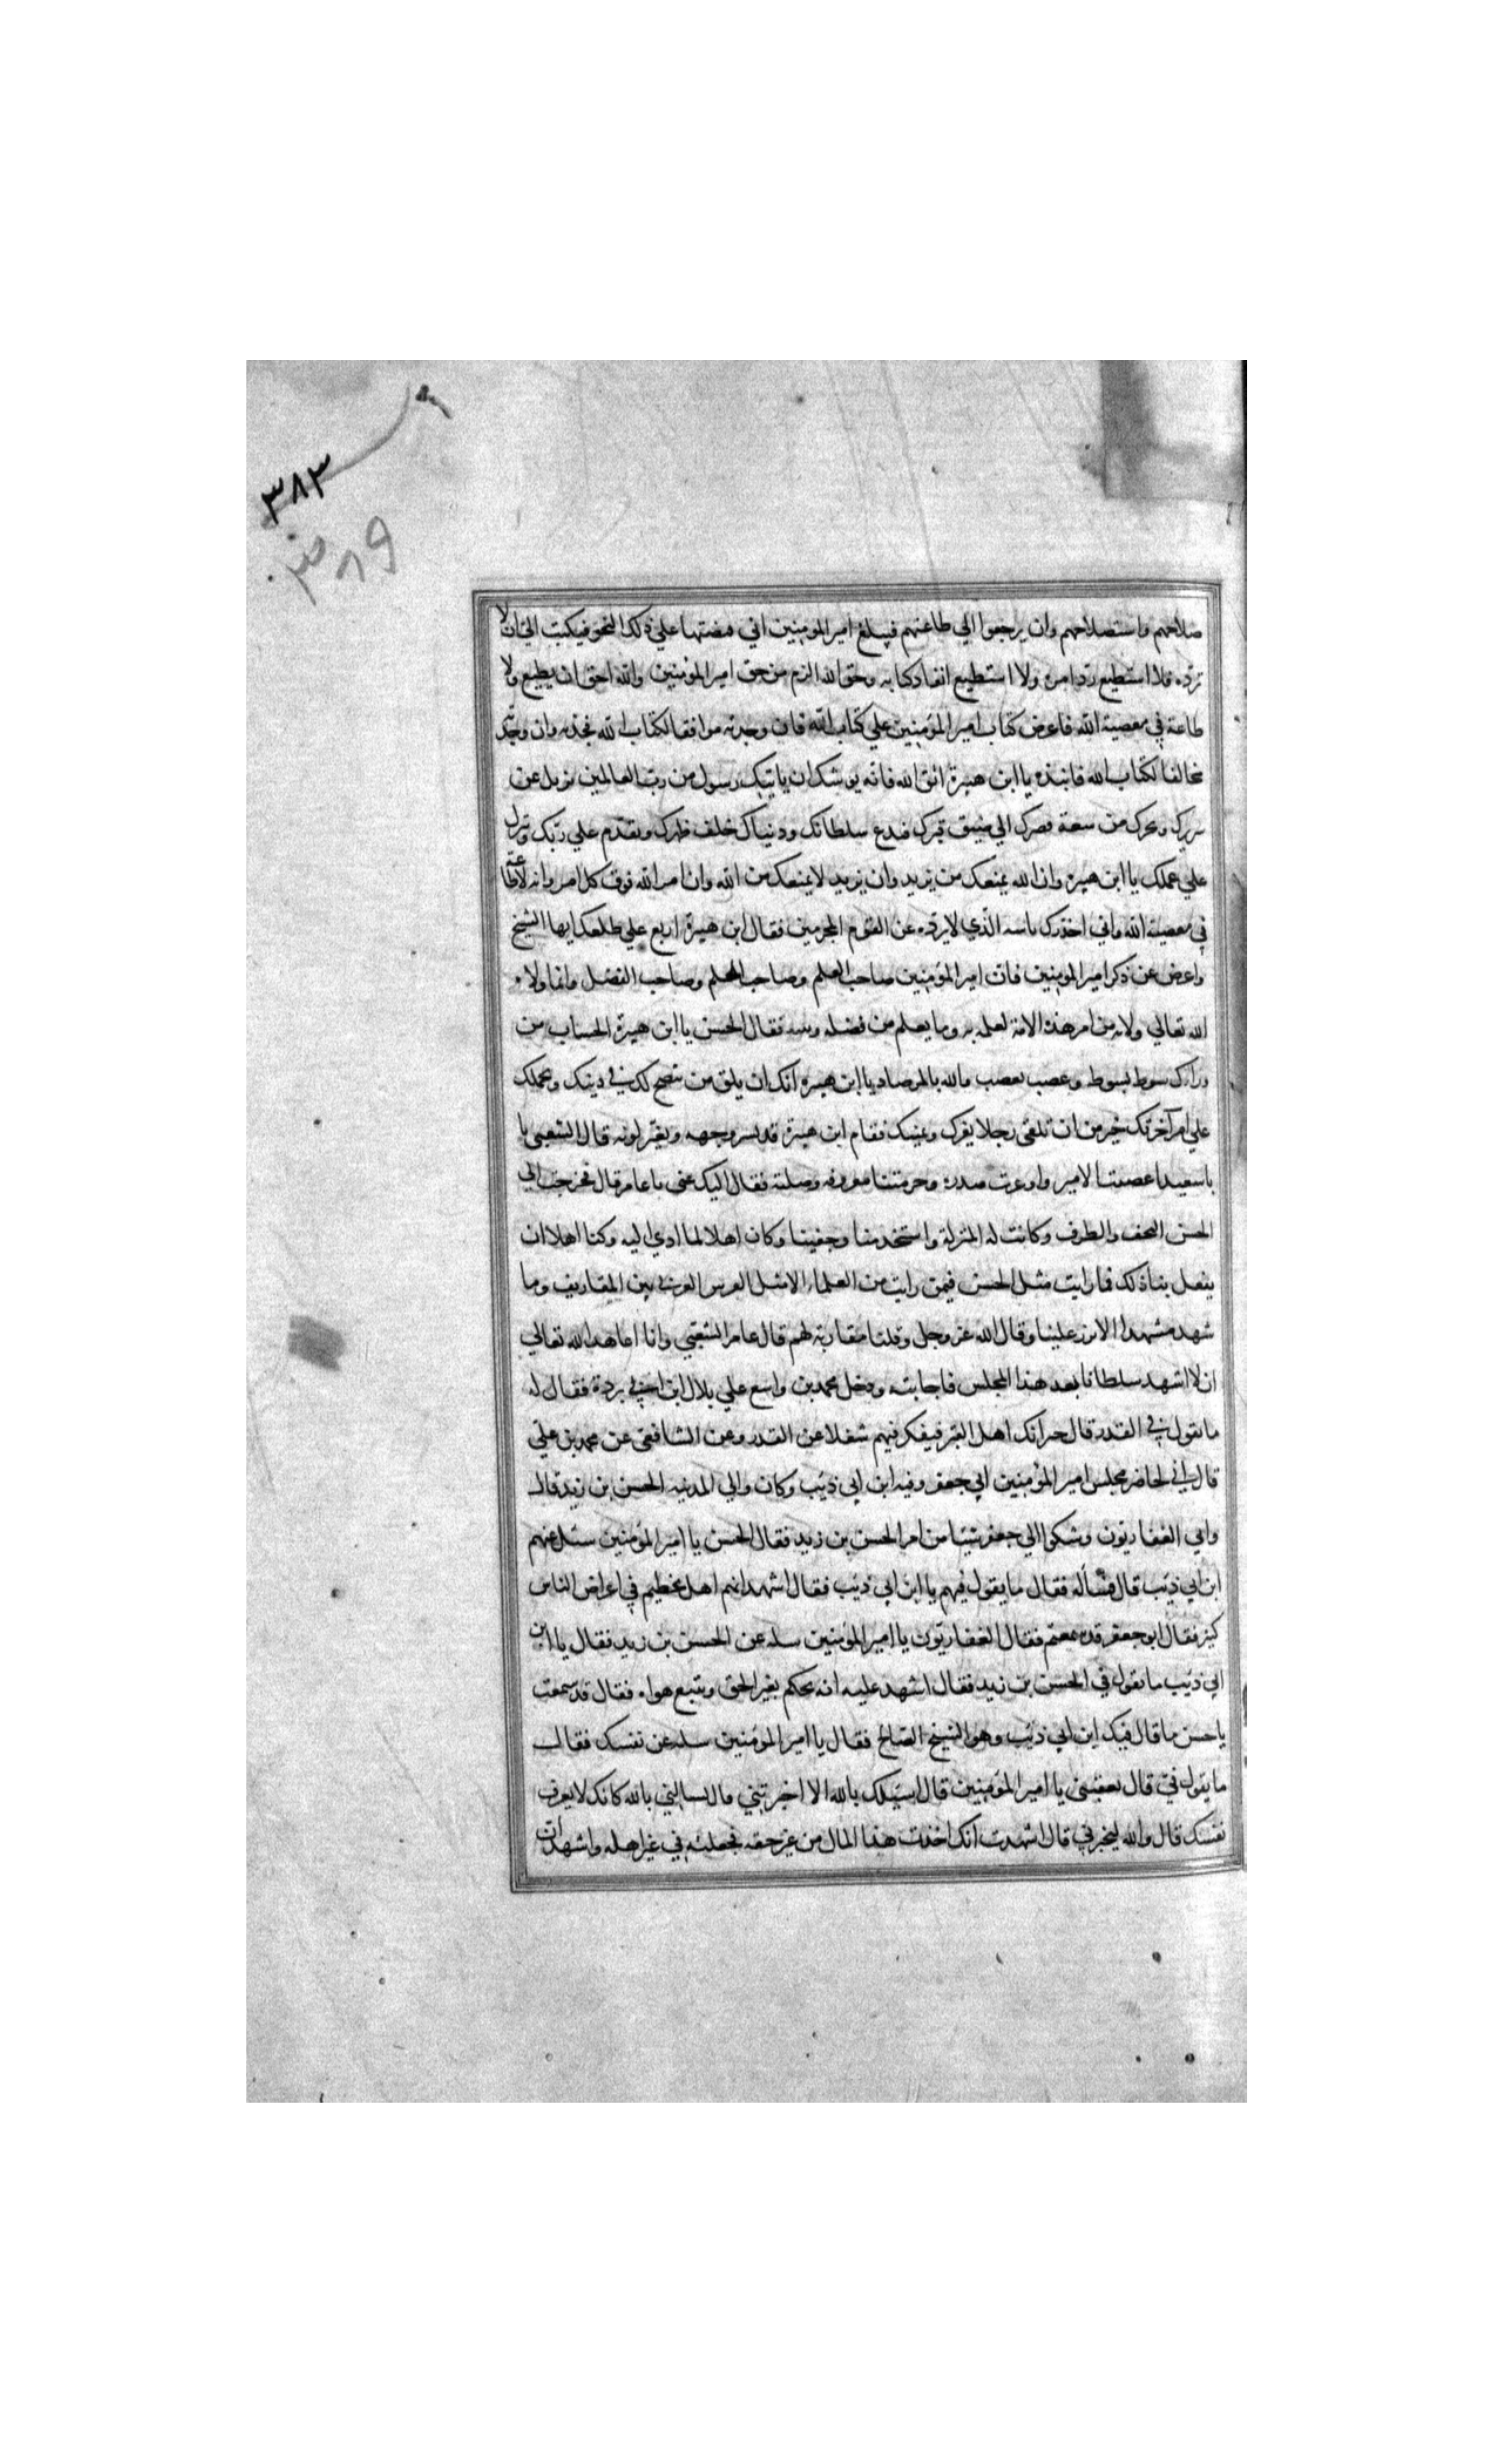 ٣٨٣
٣٨٩
صلاحهم واستصلاحهم وان يرجعوا الي طاعتهم فيبلغ امير المومنين اني قبضتها علي ذلك النحو فيكتب الي ان لا
ترده فلا استطيع رد امره ولا استطيع انفاذ كتابه وحق الله الزم من حق امير المؤمنين والله احق ان يطيع ولا
طاعة في معصية الله فاعرض كتاب امير المؤمنين علي كتاب الله فان وجدته موافقا لكتاب الله فخذ به وان وجدته
مخالفا لكتاب الله فانبذه يا ابن هبيرة اتق الله فانه يوشك ان ياتيك رسول من رب العالمين يزيل عن
سريرك ويخرجك من سعة قصرك الي ضيق قبرك فتدع سلطانك ودنياك خلف ظهرك وتقدم علي ربك وتنزل
علي عملك يا ابن هبيرة وان الله يمنعك من يزيد وان يزيد لا يمنعك من الله وان امر الله فوق كل امر وانه لا طاعة
في معصية الله واني احذرك باسه الذي لا يرده عن القوم المجرمين فقال ابن هبيرة اربع علي ظلعك ايها الشيخ
واعرض عن ذكر امير المومنين فان امير المؤمنين صاحب العلم وصاحب الحلم وصاحب الفضل وانما ولاه
الله تعالي ولاه من امر هذه الامة لعلمه به وما يعلم من فضله ونيته فقال الحسن يا ابن هبيرة الحساب من
ورائك سوط بسوط وغضب بغضب والله بالمرصاد يا ابن هبيرة انك ان يلق من نصح لك في دينك ويحملك
علي امر آخرتك خير من ان تلقي رجلا يغرك ويمنيك فقام ابن هبيرة قد بسر وجهه وتغير لونه قال الشعبي يا
با سعيد اغضبت الامير واوغرت صدره وحرمتنا معروفه وصلته فقال اليك عني يا عامر قال فخرجت الي
الحسن التحف والطرف وكانت له المنزلة واستخف بنا وجفينا وكان اهلا لما ادي اليه وكنا اهلا ان
يفعل بنا ذلك فما رايت مثل الحسن فيمن رايت من العلماء الا مثل الفرس العربي بين المقاريف وما
شهد مشهدا الا برز علينا وقال الله عز وجل وقلنا مقاربة لهم قال عامر الشعبي وانا اعاهد الله تعالي
ان لا اشهد سلطانا بعد هذا المجلس فاحابيه ودخل محمد بن واسع علي بلال ابن ابي بردة فقال له
ما تقول في القدر قال جيرانك اهل القبر فيفكر فيهم شغلا عن القدر وعن الشافعي عن محمد بن علي
قال اني لحاضر مجلس امير المؤمنين ابي جعفر وفيه ابن ابي ذئيب وكان والي المدينه الحسن بن زيد قال
واتي الغفاريون وشكوا الي جعفر شيئا من امر الحسن بن زيد فقال الحسن يا امير المؤمنين سئل عنهم
ابن ابي ذئيب قال فسأله فقال ما يقول فيهم يا ابن ابي ذئيب فقال اشهد انهم اهل تحطيم في اعراض الناس
كثير فقال ابو جعفر قد سمعتم فقال الغفاريون يا امير المؤمنين سله عن الحسن بن زيد فقال يا ابن
ابي ذئيب ما تقول في الحسن بن زيد فقال اشهد عليه انه يحكم بغير الحق ويتبع هواه فقال قد سمعت
يا حسن ما قال فيك ابن ابي ذئيب وهو الشيخ الصالح فقال يا امير المؤمنين سله عن نفسك فقال
ما يقول في قال تعفيني يا امير المؤمنين قال اسئلك بالله الا اخبرتني قال تسالني بالله كانك لا تعرف
نفسك قال والله ليخبرني قال اشهدت انك اخذت هذا المال من غير حقه فجعلته في غير اهله واشهد ان